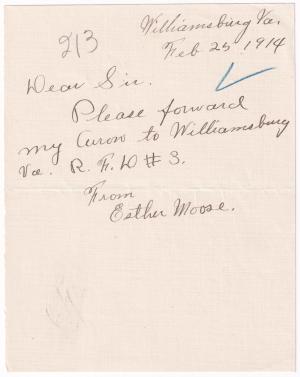 213
Williamsburg Va.
Feb 25, 1914
Dear Sir.
Please forward
my Curow to Williamsburg
Va. R. F. D # 3.
From
Esther Moose.